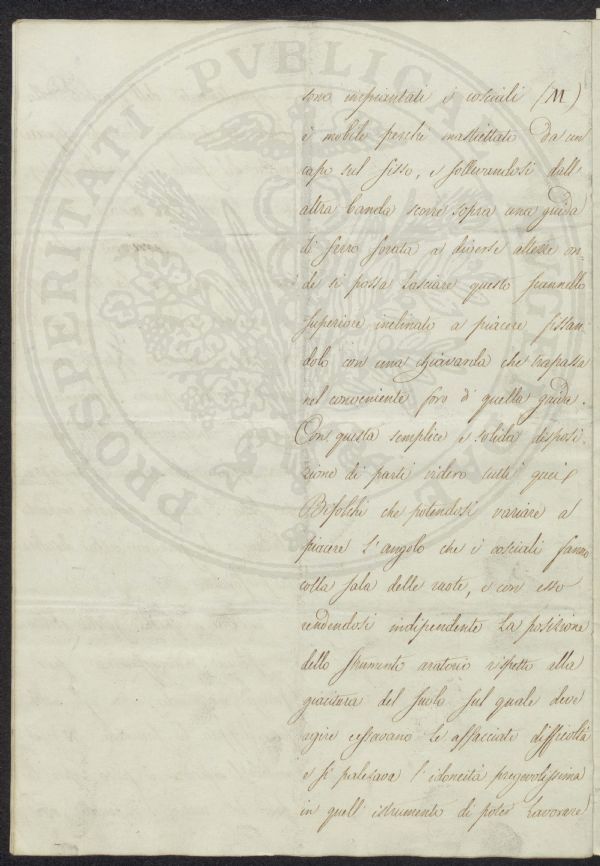 sono imperniati i cosciali (M)
è mobile perchè mastiettato da un
capo sul fisso, e sollevandosi dall'
altra banda scorre sopra una guida
di ferro forata a diverse altezze on-
de si possa lasciare questo scannello
superiore inclinato a piacere fissan-
dolo con una chiavarda che trapassa
nel conveniente foro di quella guida.
Con questa semplice e solida disposi-
zione di parti videro tutti quei
Bifolchi che potendosi variare a
piacere l'angolo che i cosciali fanno
colla sala delle ruote, e con esso
rendendosi indipendente la posizione
dello strumento aratorio rispetto alla
giacitura del suolo sul quale deve
agire cessavano le affacciate difficoltà
e si palesava l'idoneità pregevolissima
in quell'istrumento di poter lavorare
PROSPERITATI PVBLICAE